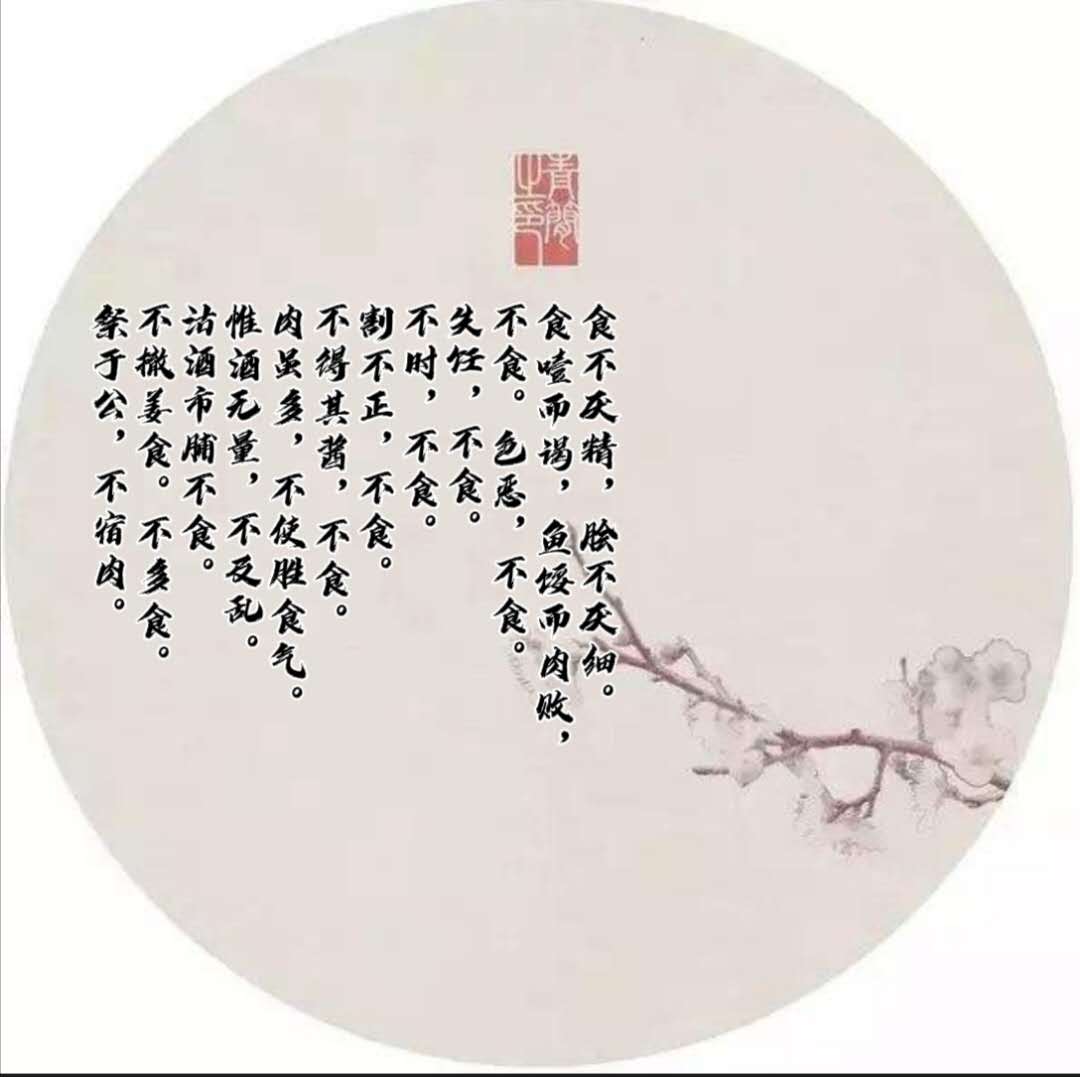 青簡
之印
食不厌精，脍不厌细。
食噎而谒，鱼馁而肉败，
不食。色恶，不食。
失饪，不食。
不时，不食。
割不正，不食。
不得其酱，不食。
肉虽多，不使胜食气。
惟酒无量，不及乱。
沽酒市脯不食。
不撤姜食。不多食。
祭于公，不宿肉。